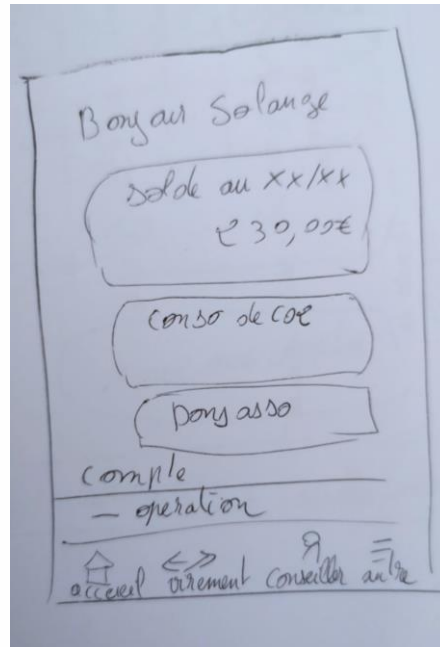 Bonjour Solange
Solde au xx/xx
230,00€
conso de co2
Dons asso
Compte
- operation
accueil virement conseiller autre